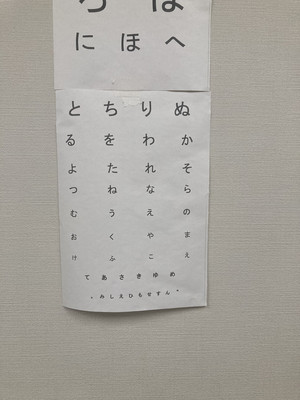 ろは
に ほ へ
と ち り ぬ
る を わ か
よ た れ そ
つ ね な ら
む う え の
お く や ま
け ふ こ え
て あ さ き ゆ め
・ み し え ひ も せ す ん ・